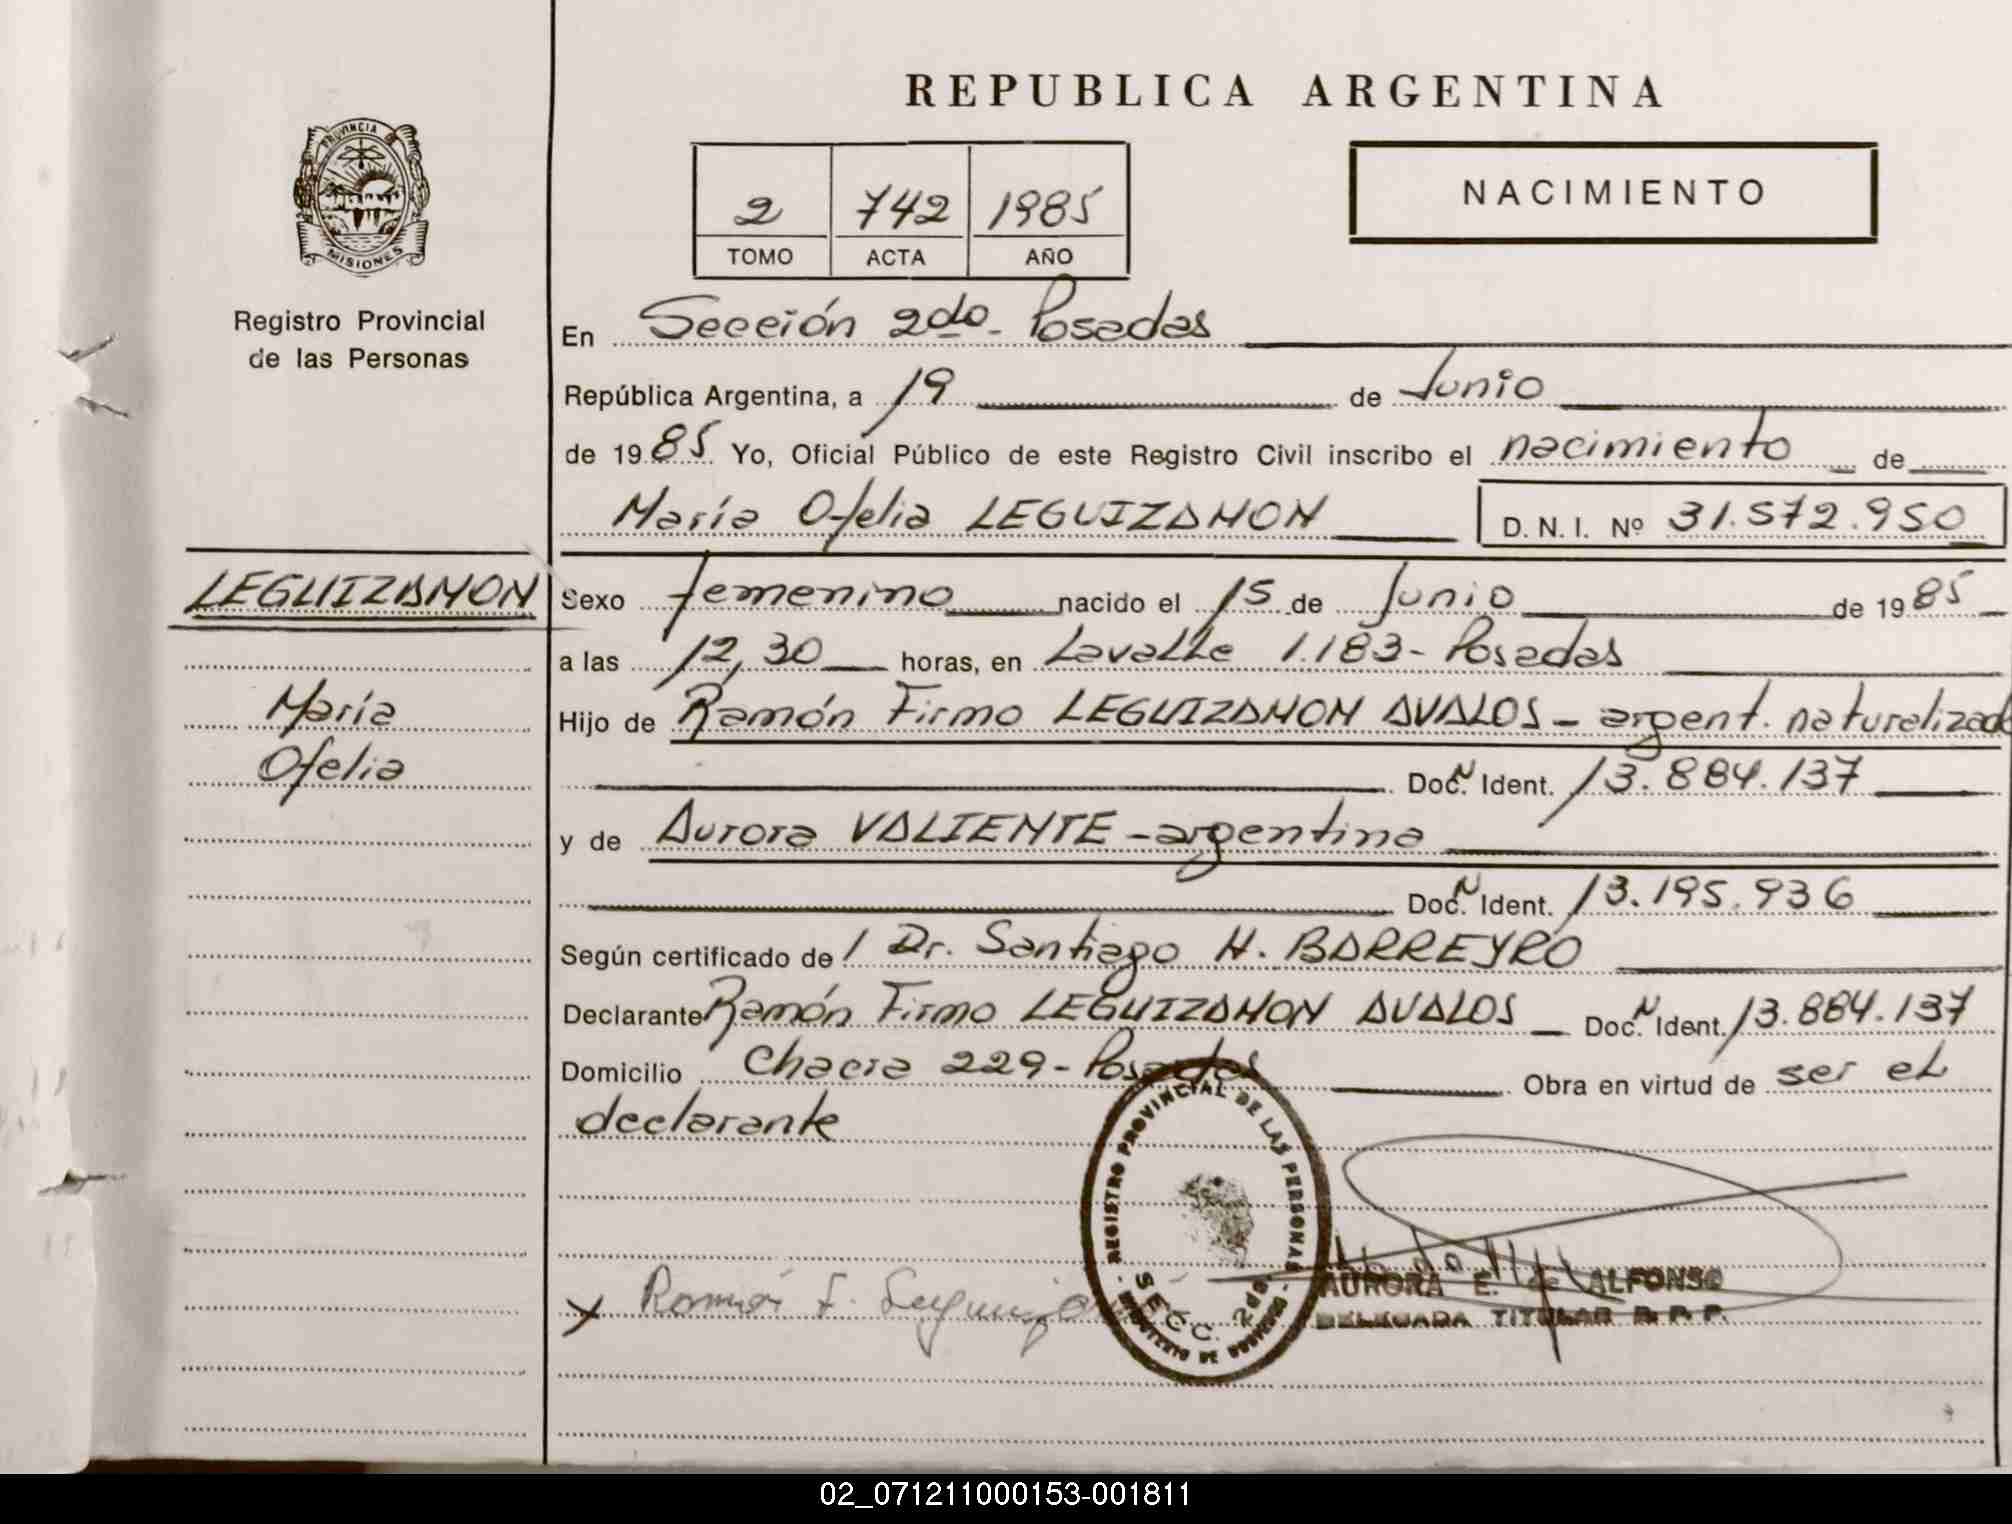 REPUBLICA ARGENTINA
PROVINCIA DE
MISIONES
Registro Provincial
de las Personas
2 742 1985
TOMO ACTA AÑO
NACIMIENTO
En Sección 2da- Posadas
República Argentina, a 19 de Junio
de 1985 Yo, Oficial Público de este Registro Civil inscribo el nacimiento de
María Ofelia LEGUIZAMON D. N. I. Nº 31.572.950
LEGUIZAMON
María
Ofelia
Sexo femenino nacido el 15 de Junio de 1985
a las 12,30 horas, en Lavalle 1.183- Posadas
Hijo de Ramón Firmo LEGUIZAMON AVALOS - argent. naturalizado
Doc. N Ident. 13.884.137
y de Aurora VALIENTE - argentina
Doc. N Ident. 13.195.936
Según certificado de / Dr. Santiago H. BARREYRO
Declarante Ramón Firmo LEGUIZAMON AVALOS Doc. N Ident. 13.884.137
Domicilio Chacra 229- Posadas Obra en virtud de ser el
declarante
REGISTRO PROVINCIAL DE LAS PERSONAS
SECC. 2da.
MINISTERIO DE GOBIERNO
x Ramón F. Leguiza
AURORA E. de ALFONSO
DELEGADA TITULAR R. P. P.
02_071211000153-001811